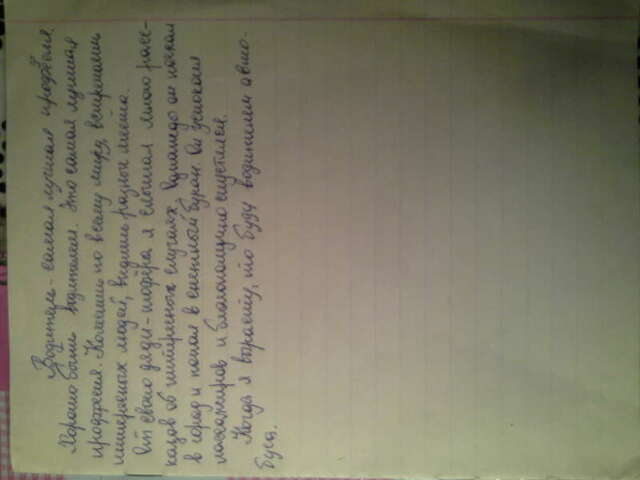 Водитель - самая лучшая профессия.
Хорошо быть водителем. Это самая лучшая
профессия. Колесишь по всему миру, встречаешь
интересных людей, видишь разные места.
От своего дяди-шофёра я слышал много расс-
казов об интересных случаях. Однажды он поехал
в город и попал в снежный буран. Он успокоил
пассажиров и благополучно спустился.
Когда я вырасту, то буду водителем авто-
буса.